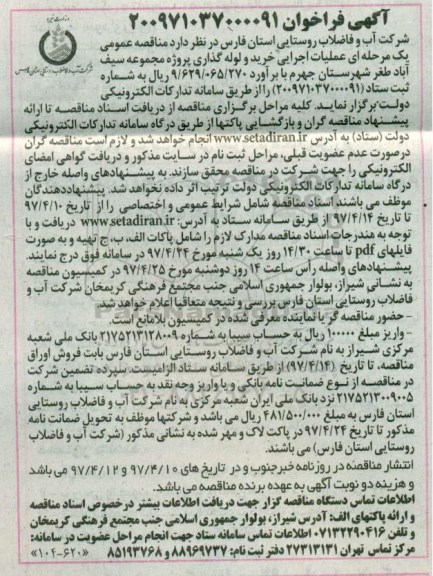 آگهی فراخوان ۲۰۰۹۷۱۰۳۷۰۰۰۰۹۱
شرکت آب و فاضلاب روستایی استان فارس در نظر دارد مناقصه عمومی
یک مرحله ای عملیات اجرایی خرید و لوله گذاری پروژه مجموعه سیف
آباد طغر شهرستان جهرم با برآورد ۹/۶۲۹/۰۶۵/۲۷۰ ریال به شماره
ثبت ستاد (۲۰۰۹۷۱۰۳۷۰۰۰۰۹۱) را از طریق سامانه تدارکات الکترونیکی
دولت برگزار نماید. کلیه مراحل برگزاری مناقصه از دریافت اسناد مناقصه تا ارائه
پیشنهاد مناقصه گران و بازگشایی پاکتها از طریق درگاه سامانه تدارکات الکترونیکی
دولت (ستاد) به آدرس www.setadiran.ir انجام خواهد شد و لازم است مناقصه گران
درصورت عدم عضویت قبلی، مراحل ثبت نام در سایت مذکور و دریافت گواهی امضای
الکترونیکی را جهت شرکت در مناقصه محقق سازند. به پیشنهادهای واصله خارج از
درگاه سامانه تدارکات الکترونیکی دولت ترتیب اثر داده نخواهد شد. پیشنهاددهندگان
موظف می باشند اسناد مناقصه شامل شرایط عمومی و اختصاصی را از تاریخ ۹۷/۴/۱۰
تا تاریخ ۹۷/۴/۱۴ از طریق سامانه ستاد به آدرس: www.setadiran.ir دریافت و با
توجه به هندرجات اسناد مناقصه مدارک لازم را شامل پاکات الف، ب، ج تهیه و به صورت
فایلهای pdf تا ساعت ۱۴/۳۰ روز یک شنبه مورخ ۹۷/۴/۲۴ در سامانه فوق درج نمایند.
پیشنهادهای واصله رأس ساعت ۱۴ روز دوشنبه مورخ ۹۷/۴/۲۵ در کمیسیون مناقصه
به نشانی شیراز، بولوار جمهوری اسلامی جنب مجتمع فرهنگی کریمخان شرکت آب و
فاضلاب روستایی استان فارس بررسی و نتیجه متعاقبا اعلام خواهد شد.
- حضور مناقصه گر یا نماینده معرفی شده در کمیسیون بلامانع است.
- واریز مبلغ ۱۰۰۰۰۰ ریال به حساب سیبا به شماره ۲۱۷۵۲۱۳۱۲۸۰۰۹ بانک ملی شعبه
مرکزی شیراز به نام شرکت آب و فاضلاب روستایی استان فارس بابت فروش اوراق
مناقصه، تا تاریخ (۹۷/۴/۱۴) از طریق سامانه ستاد الزامیست. سپرده تضمین شرکت
در مناقصه از نوع ضمانت نامه بانکی و یا واریز وجه نقد به حساب سیبا به شماره
۲۱۷۵۲۱۳۰۰۹۰۰۵ نزد بانک ملی ایران شعبه مرکزی به نام شرکت آب و فاضلاب روستایی
استان فارس به مبلغ ۴۸۱/۵۰۰/۰۰۰ ریال می باشد و شرکتها موظف به تحویل ضمانت نامه
مذکور تا تاریخ ۹۷/۴/۲۴ در پاکت لاک و مهر شده به نشانی مذکور (شرکت آب و فاضلاب
روستایی استان فارس) می باشند.
انتشار مناقصه در روزنامه خبرجنوب و در تاریخ های ۹۷/۴/۱۰ و ۹۷/۴/۱۲ می باشد
و هزینه دو نوبت آگهی به عهده برنده مناقصه می باشد.
اطلاعات تماس دستگاه مناقصه گزار جهت دریافت اطلاعات بیشتر درخصوص اسناد مناقصه
و ارائه پاکتهای الف: آدرس شیراز، بولوار جمهوری اسلامی جنب مجتمع فرهنگی کریمخان
و تلفن ۰۷۱۳۲۲۹۰۴۱۶ اطلاعات تماس سامانه ستاد جهت انجام مراحل عضویت در سامانه:
مرکز تماس تهران ۲۷۳۱۳۱۳۱ دفتر ثبت نام: ۸۸۹۶۹۷۳۷ و ۸۵۱۹۳۷۶۸ «۶۲۰-۱۰۴»